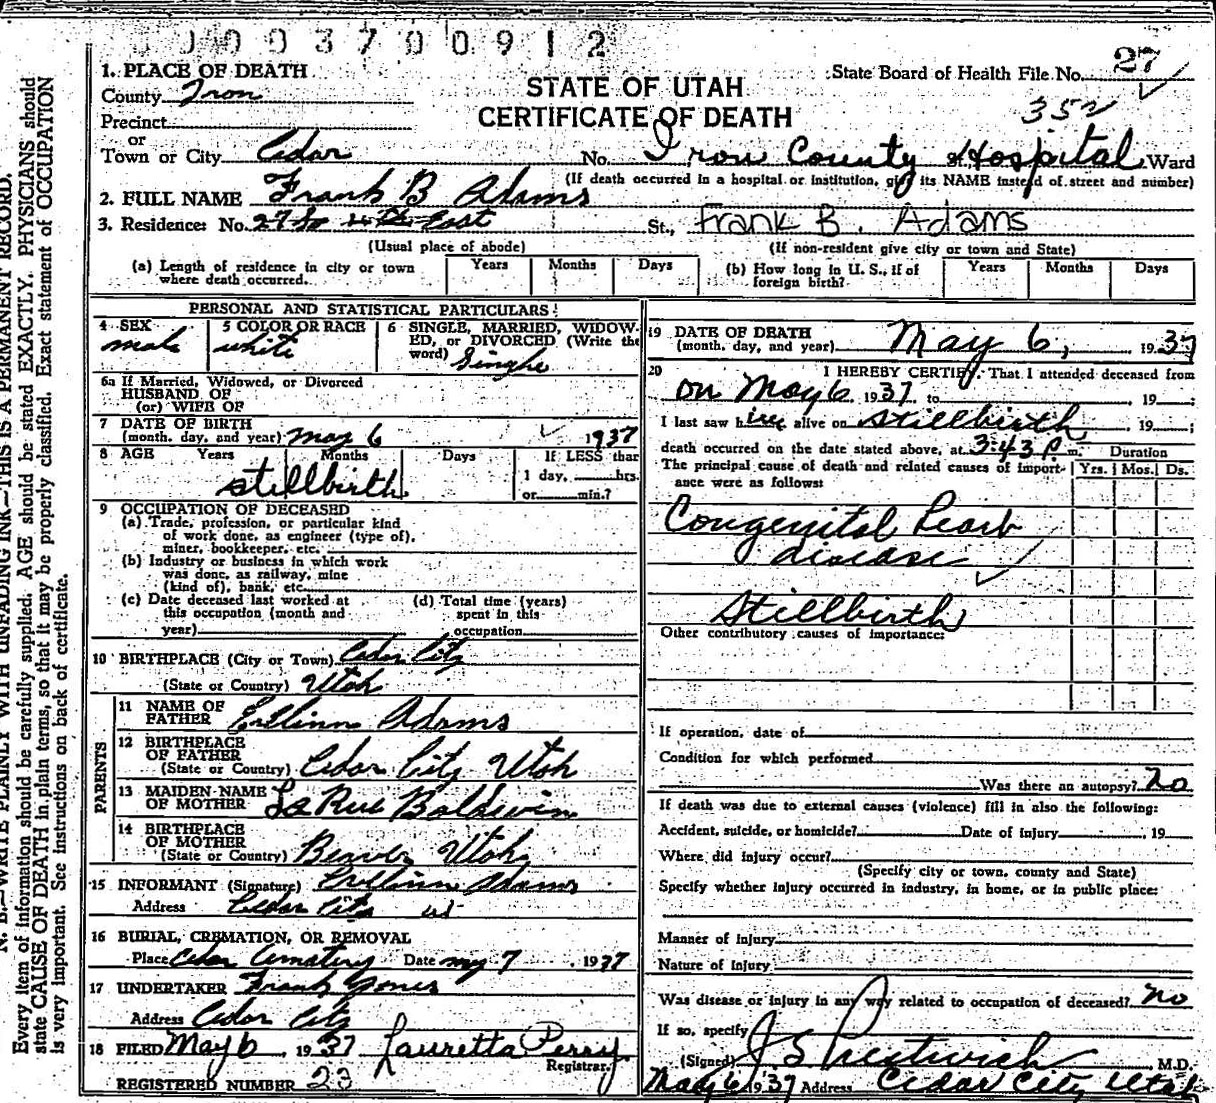 0003700912
1. PLACE OF DEATH
County Iron
Precinct
or
Town or City Cedar
STATE OF UTAH
CERTIFICATE OF DEATH
State Board of Health File No. 27
352
No. Iron County Hospital St. Ward
(If death occurred in a hospital or institution, give its NAME instead of street and number)
2. FULL NAME Frank B Adams
3. Residence: No. 27 So 4th East St., Frank B. Adams
(Usual place of abode) (If non-resident give city or town and State)
(a) Length of residence in city or town where death occurred. Years Months Days
(b) How long in U. S., if of foreign birth? Years Months Days
PERSONAL AND STATISTICAL PARTICULARS
4 SEX male
5 COLOR OR RACE white
6 SINGLE, MARRIED, WIDOWED, or DIVORCED (Write the word) Single
6a If Married, Widowed, or Divorced
HUSBAND OF
(or) WIFE OF
7 DATE OF BIRTH
(month, day, and year) May 6 1937
8 AGE Years Months Days If LESS than
1 day, hrs.
or min.?
stillbirth
9 OCCUPATION OF DECEASED
(a) Trade, profession, or particular kind
of work done, as engineer (type of),
miner, bookkeeper, etc.
(b) Industry or business in which work
was done, as railway, mine
(kind of), bank, etc.
(c) Date deceased last worked at
this occupation (month and
year)
(d) Total time (years)
spent in this
occupation
10 BIRTHPLACE (City or Town) Cedar City
(State or Country) Utah
PARENTS
11 NAME OF
FATHER Adams
12 BIRTHPLACE
OF FATHER
(State or Country) Cedar City Utah
13 MAIDEN NAME
OF MOTHER La Rue Baldwin
14 BIRTHPLACE
OF MOTHER
(State or Country) Beaver Utah
15 INFORMANT (Signature) Adams
Address Cedar City Ut
16 BURIAL, CREMATION, OR REMOVAL
Place Cedar Cematery Date May 7 1937
17 UNDERTAKER Frank Jones
Address Cedar City
18 FILED May 6 1937 Lauretta Perry
Registrar.
REGISTERED NUMBER 23
19 DATE OF DEATH
(month, day, and year) May 6, 1937
20 I HEREBY CERTIFY. That I attended deceased from
on May 6 1937 to 19
I last saw him alive on stillbirth, 19 ;
death occurred on the date stated above, at 3:43 P. m.
The principal cause of death and related causes of importance were as follows:
Duration
Yrs. Mos. Ds.
Congenital heart
disease
Stillbirth
Other contributory causes of importance:
If operation, date of
Condition for which performed
Was there an autopsy? no
If death was due to external causes (violence) fill in also the following:
Accident, suicide, or homicide? Date of injury 19
Where did injury occur?
(Specify city or town, county and State)
Specify whether injury occurred in industry, in home, or in public place:
Manner of injury
Nature of injury
Was disease or injury in any way related to occupation of deceased? no
If so, specify
(Signed) J S Prestwich M.D.
May 6 1937 Address Cedar City Utah
N. B.—WRITE PLAINLY WITH UNFADING INK—THIS IS A PERMANENT RECORD.
Every item of information should be carefully supplied. AGE should be stated EXACTLY. PHYSICIANS should
state CAUSE OF DEATH in plain terms, so that it may be properly classified. Exact statement of OCCUPATION
is very important. See instructions on back of certificate.